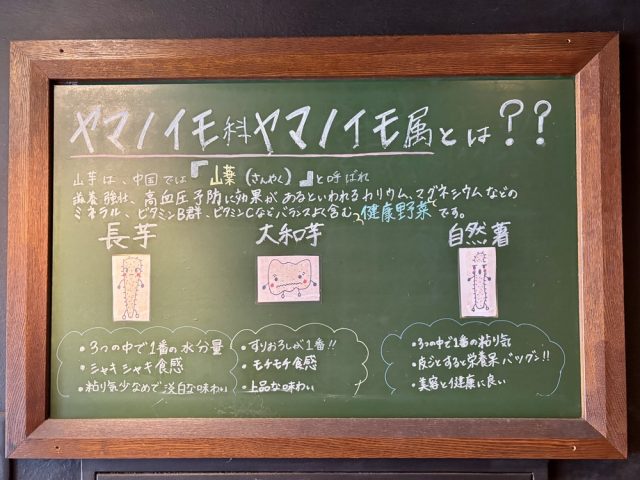 ヤマノイモ科ヤマノイモ属とは??
山芋は、中国では『山薬(さんやく)』と呼ばれ
滋養強壮、高血圧予防に効果があるといわれるカリウム、マグネシウムなどの
ミネラル、ビタミンB群、ビタミンCなどバランスよく含む、健康野菜です。
長芋
・3つの中で1番の水分量
・シャキシャキ食感
・粘り気少なめで淡白な味わい
大和芋
・すりおろしが1番!!
・モチモチ食感
・上品な味わい
自然薯
・3つの中で1番の粘り気
・皮ごとすると栄養果バツグン!!
・美容と健康に良い